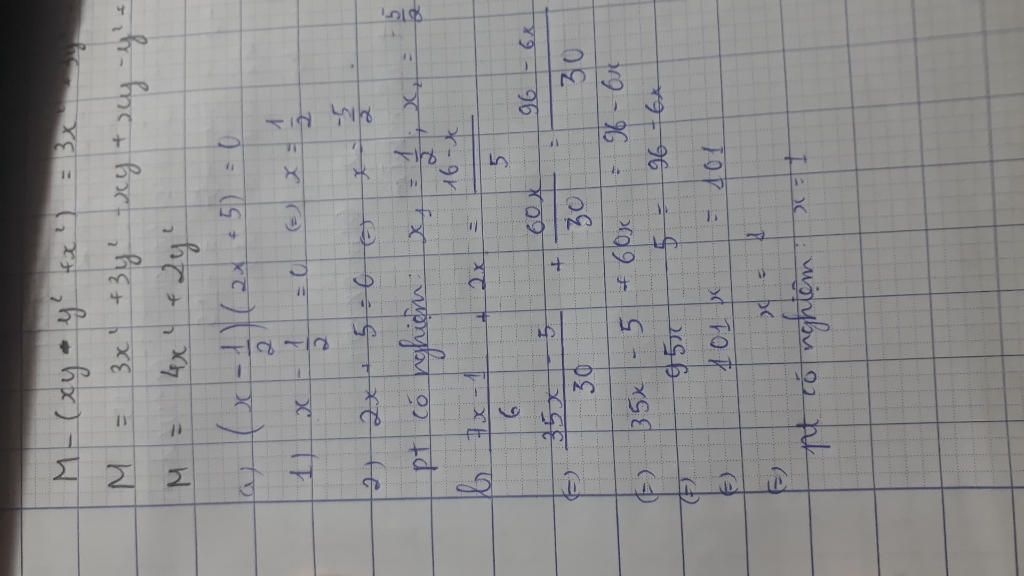 M - (xy • y² + x²) = 3x² + 3y²
M = 3x² + 3y² - xy + xy - y² +
M = 4x² + 2y²
a) (x - 1/2)(2x + 5) = 0
1) x - 1/2 = 0 (=) x = 1/2
2) 2x + 5 = 0 (=) x = -5/2
pt có nghiệm: x₁ = 1/2; x₂ = -5/2
b) (7x - 1)/6 + 2x = (16 - x)/5
(=) (35x - 5)/30 + 60x/30 = (96 - 6x)/30
(=) 35x - 5 + 60x = 96 - 6x
(=) 95x 5 = 96 - 6x
(=) 101x = 101
(=) x = 1
pt có nghiệm: x = 1